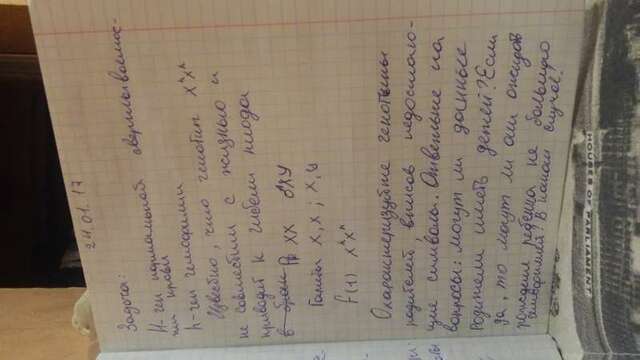 24.01.17
Задача:
H - ген нормальной свертываемос-
ти крови
h - ген гемофилии
Известно, что генотип XʰXʰ
не совместим с жизнью и
приводит к гибели плода
P XX ♂XY
Гаметы X, X; X, y
F(1) XʰXʰ
Охарактеризуйте генотипы
родителей, вписав недостаю-
щие символы. Ответьте на
вопросы: могут ли данные
родители иметь детей? Если
да, то могут ли они ожидать
рождения ребенка не больного
гемофилией? В каком случае?
HOUSES OF PARLIAMENT